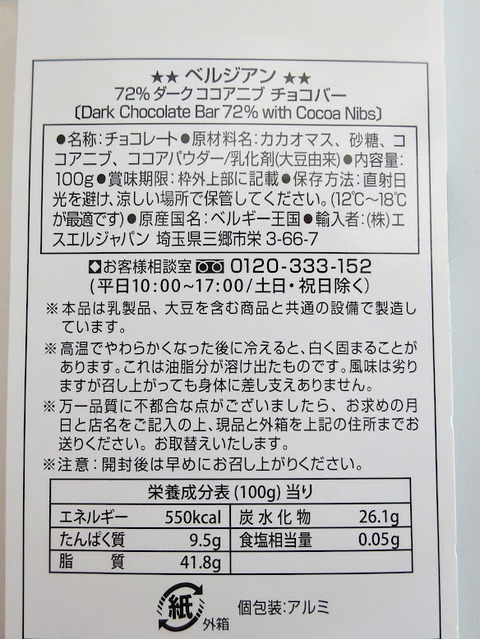 ★★ ベルジアン ★★
72%ダークココアニブ チョコバー
〔Dark Chocolate Bar 72% with Cocoa Nibs〕
●名称:チョコレート●原材料名:カカオマス、砂糖、コ
コアニブ、ココアパウダー/乳化剤(大豆由来)●内容量:
100g●賞味期限:枠外上部に記載●保存方法:直射日
光を避け、涼しい場所で保管してください。(12℃〜18℃
が最適です)●原産国名:ベルギー王国●輸入者:(株)エ
スエルジャパン 埼玉県三郷市栄 3-66-7
◆お客様相談室 0120-333-152
(平日10:00〜17:00/土日・祝日除く)
※本品は乳製品、大豆を含む商品と共通の設備で製造し
ています。
※高温でやわらかくなった後に冷えると、白く固まることが
あります。これは油脂分が溶け出たものです。風味は劣り
ますが召し上がっても身体に差し支えありません。
※万一品質に不都合な点がございましたら、お求めの月
日と店名をご記入の上、現品と外箱を上記の住所までお
送りください。お取替えいたします。
※注意:開封後は早めにお召し上がりください。
栄養成分表(100g)当り
エネルギー 550kcal 炭水化物 26.1g
たんぱく質 9.5g 食塩相当量 0.05g
脂質 41.8g
紙 外箱 個包装:アルミ